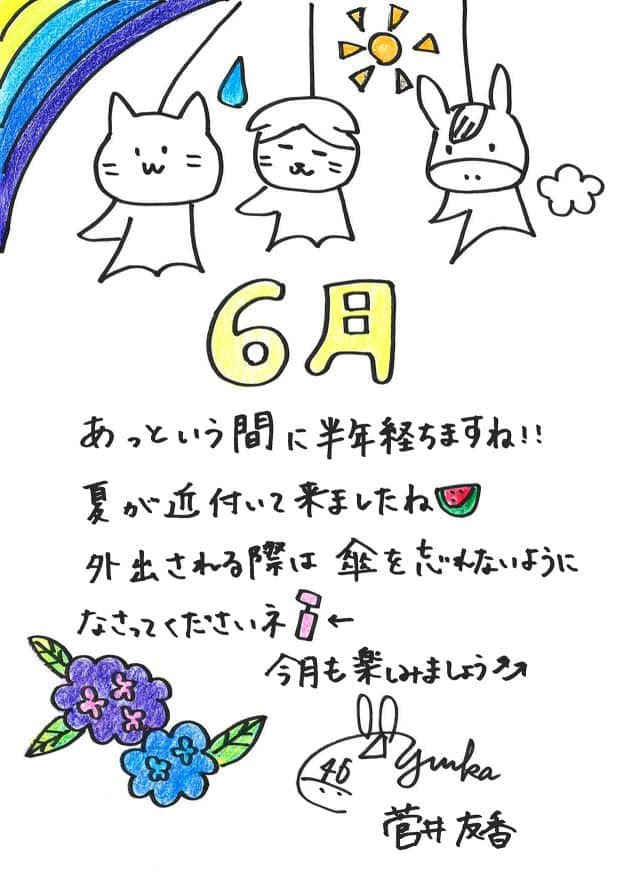 6月
あっという間に半年経ちますね!!
夏が近付いて来ましたね
外出される際は 傘を忘れないように
なさってくださいネ ←
今月も楽しみましょう↗↗
46
yuuka
菅井友香